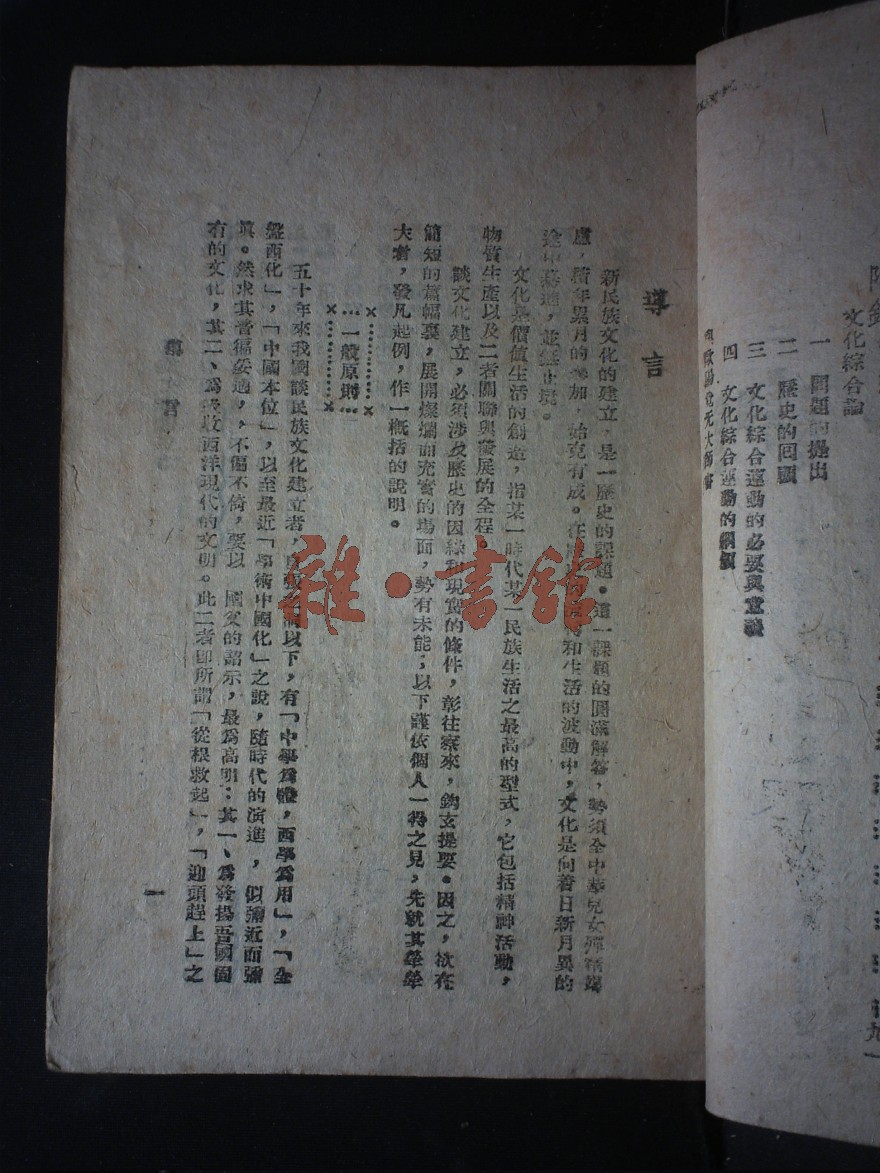 文化綜合論
一 問題的提出
二 歷史的回顧
三 文化綜合運動的必要與意義
四 文化綜合運動的綱領
導言
新民族文化的建立，是一歷史的課題。這一課題的圓滿解答，勢須全中華兒女殫精竭
慮，積年累月的參加，始克有成。在 和生活的波動中，文化是向着日新月異的
途中 進，並無止境。
文化是價值生活的創造，指某一時代某一民族生活之最高的型式，它包括精神活動，
物質生產以及二者關聯與發展的全程。
談文化建立，必須涉及歷史的因緣和現實的條件，彰往察來，鈎玄提要。因之，欲在
簡短的篇幅裏，展開燦爛而充實的場面，勢有未能；以下謹依個人一得之見，先就其犖犖
大者，發凡起例，作一概括的說明。
一般原則
五十年來我國談民族文化建立者， 以下，有「中學爲體，西學爲用」，「全
盤西化」，「中國本位」，以至最近「學術中國化」之說，隨時代的演進，似彌近而彌
眞。然求其普徧妥適，不偏不倚，要以 國父的詔示，最爲高明：其一、爲發揚吾國固
有的文化，其二、爲吸收西洋現代的文明。此二者即所謂「從根救起」，「迎頭趕上」之
導言
一
雜·書館